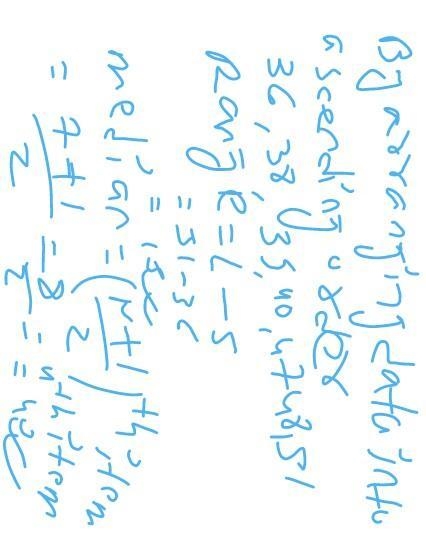 By arranging data into
ascending order
36, 38, 39, 40, 47, 48, 51
Range = L - S
= 51 - 36
= 15
median = (n+1 / 2)th item
= 7+1 / 2 = 8 / 2 = 4th item
= 40